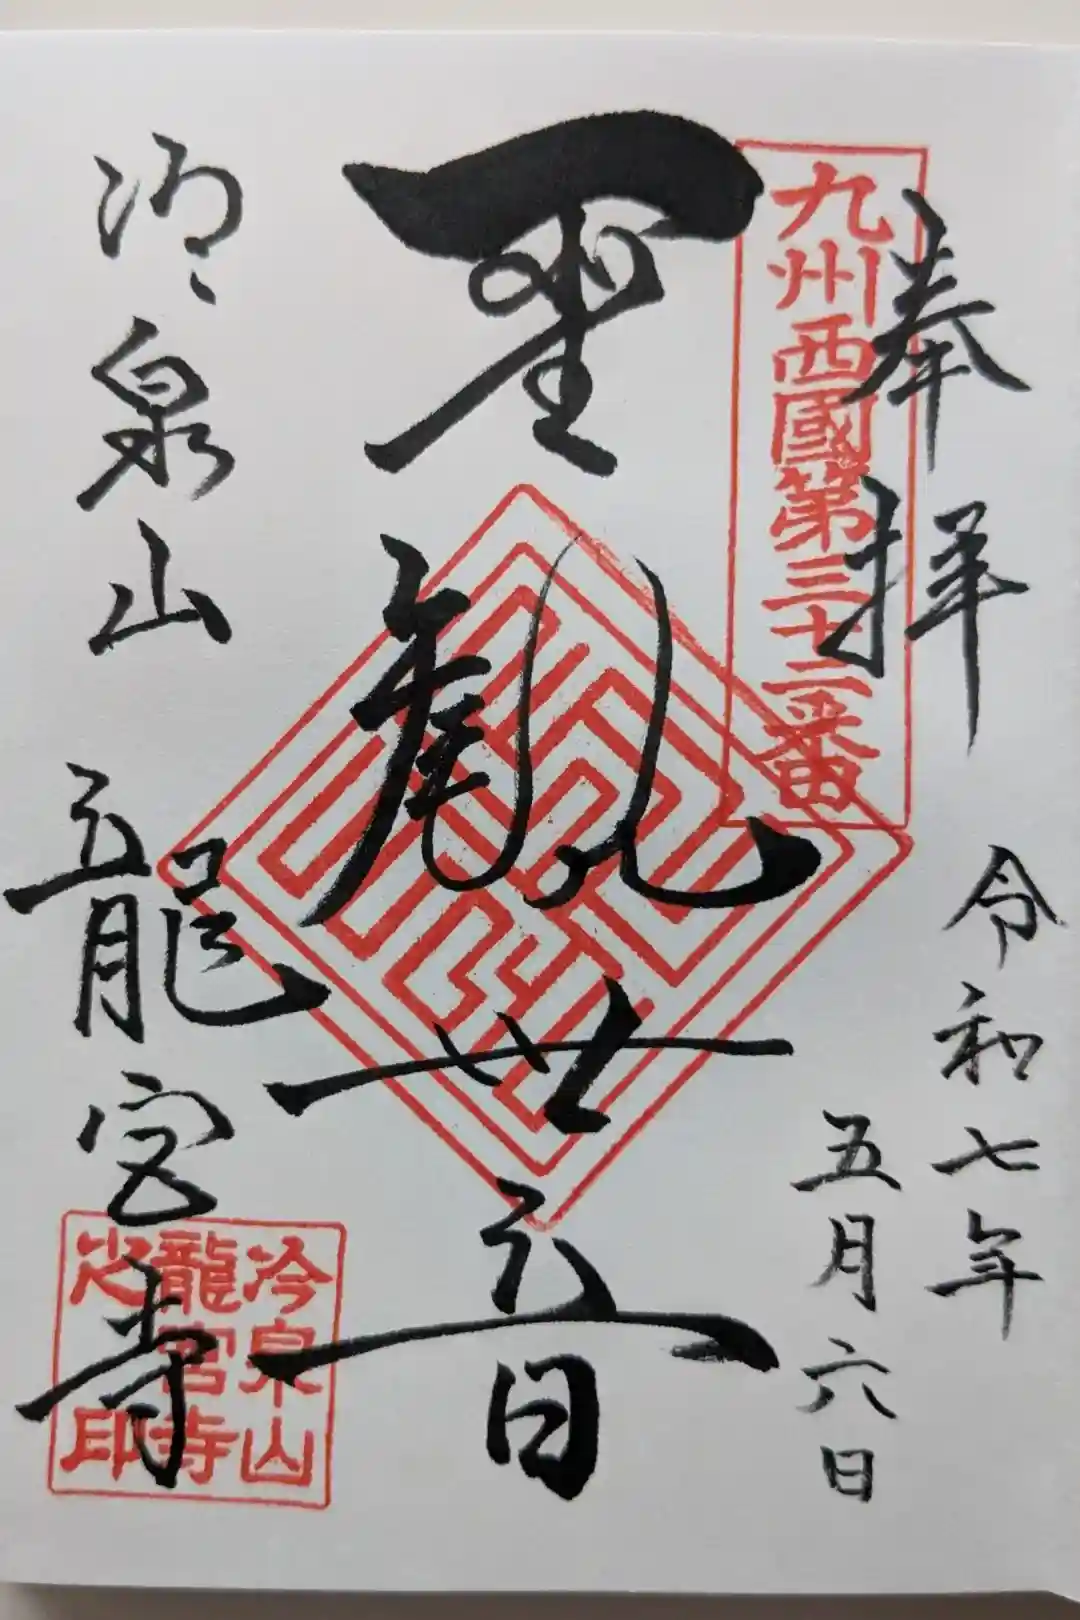 奉拝
令和七年
五月六日
九州西國第三十二番
聖観世音
冷泉山
龍宮寺
冷泉山
龍宮寺
之印